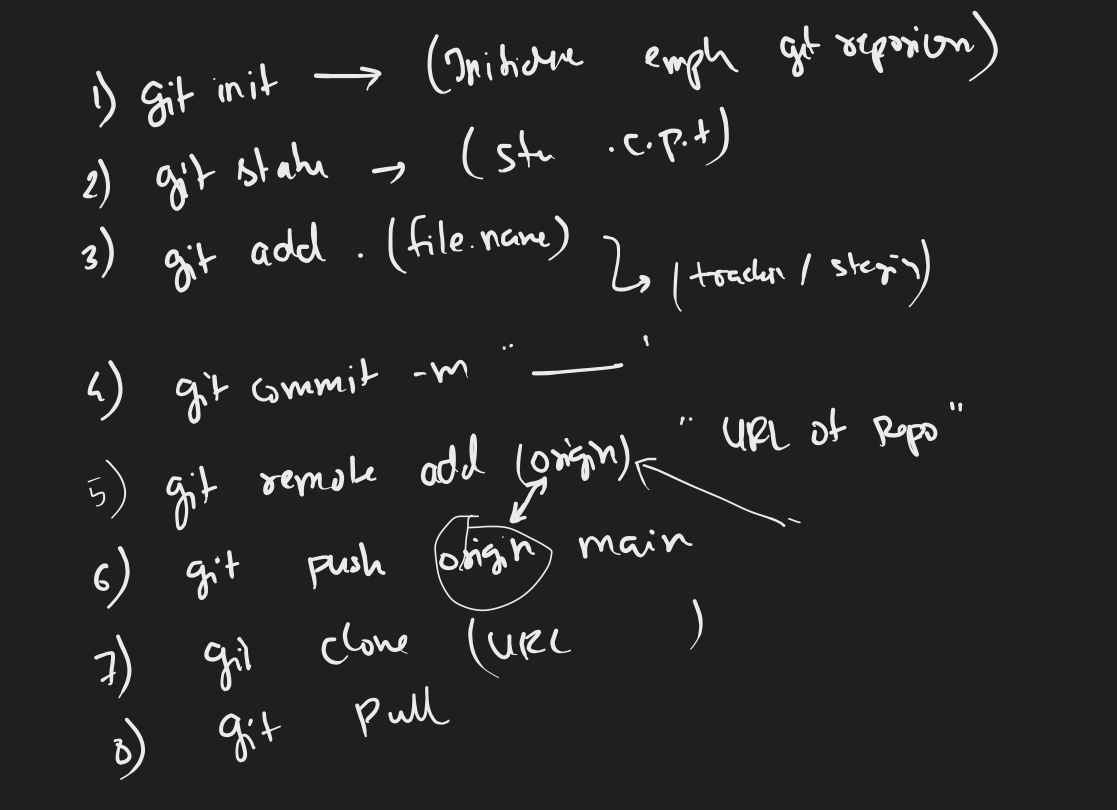 1) git init → (Initialize empty git repository)
2) git status → ( .c.p.t)
3) git add . (file.name)
↳ (tracking / staging)
4) git commit -m " ____ '
5) git remote add (origin) " URL of Repo "
6) git push origin main
7) git clone (URL )
8) git pull